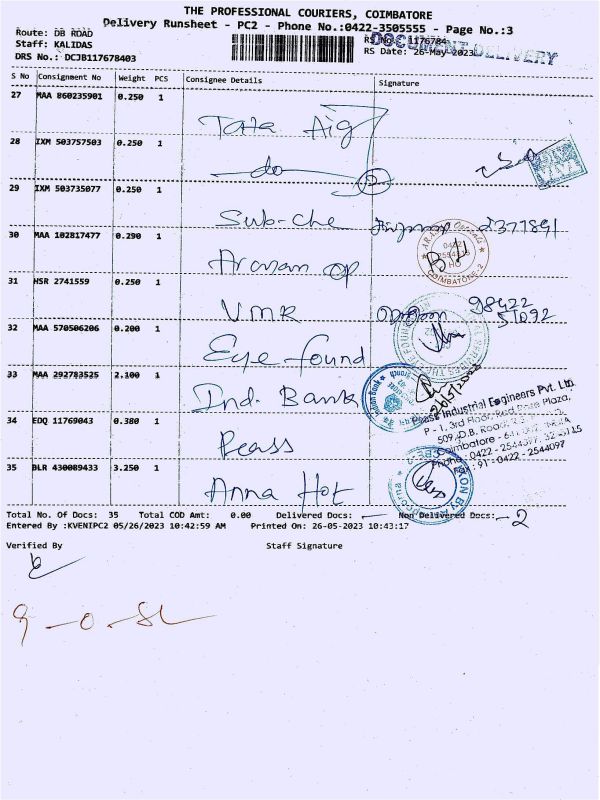 THE PROFESSIONAL COURIERS, COIMBATORE
Delivery Runsheet - PC2 - Phone No.:0422-3505555 - Page No.:3
Route: DB ROAD
Staff: KALIDAS
DRS No.: DCJB117678403
RS No.: 1176784
RS Date: 26-May-2023
DOCUMENT DELIVERY
S No Consignment No Weight PCS Consignee Details Signature
27 MAA 860235901 0.250 1 Tata Aig
28 IXM 503757503 0.250 1 do
29 IXM 503735077 0.250 1 Sub-che 2371891
30 MAA 102817477 0.290 1 Aravam op
ARAVAM
0422
HO
COIMBATORE-2
31 HSR 2741559 0.250 1 VMR 98422
51092
32 MAA 570506206 0.200 1 Eye found
33 MAA 292783525 2.100 1 Ind. Bank
26/5/2023
34 EDQ 11769043 0.380 1 Peass
Pease Industrial Engineers Pvt. Ltd.
P - 1, 3rd Floor, Red Rose Plaza,
509, D.B. Road, R.S.
Coimbatore - 641 002. INDIA
Phone : 0422 - 2544097,
: 91 : 0422 - 2544097
35 BLR 430089433 3.250 1 Anna Hot
Total No. Of Docs: 35 Total COD Amt: 0.00 Delivered Docs: — Non Delivered Docs: - 2
Entered By :KVENIPC2 05/26/2023 10:42:59 AM Printed On: 26-05-2023 10:43:17
Verified By Staff Signature